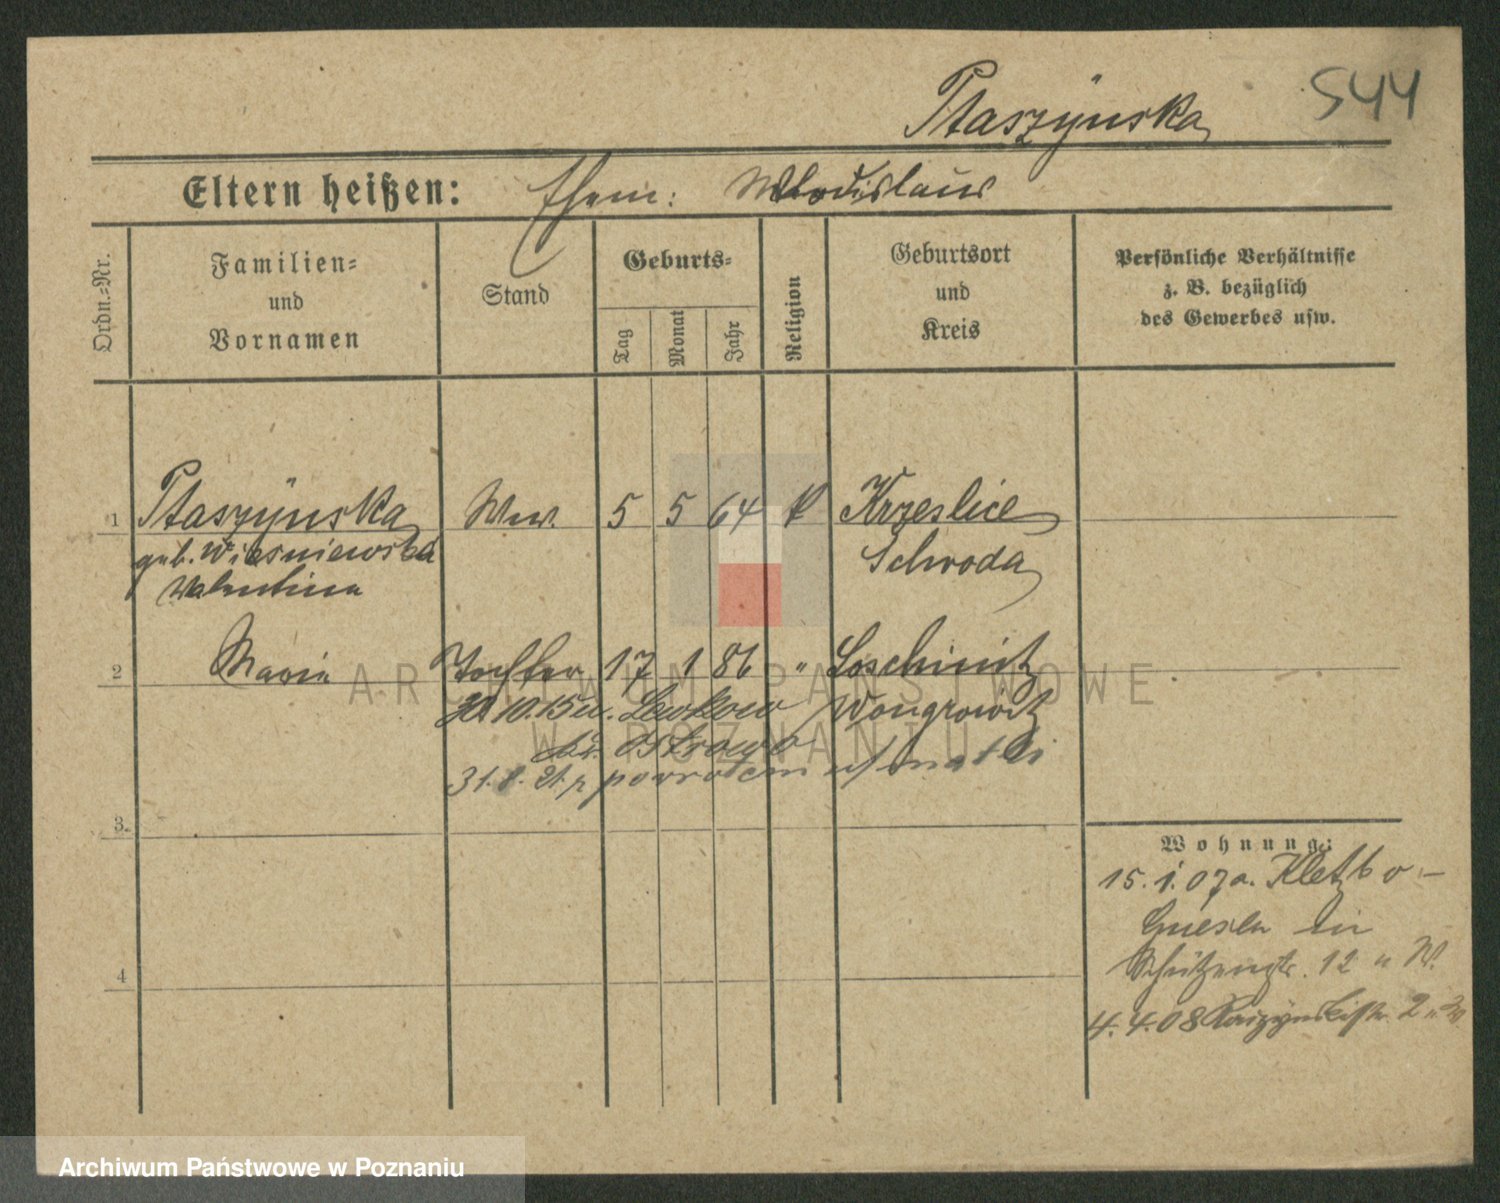 Ptaszÿnska 544
Eltern heißen: Ehem: Wladislaus
Ordn.=Nr.
Familien=
und
Vornamen
Stand
Geburts=
Tag
Monat
Jahr
Religion
Geburtsort
und
Kreis
Persönliche Verhältnisse
z. B. bezüglich
des Gewerbes usw.
1 Ptaszÿnska Ww. 5 5 64 k Krzeslice
geb. Wiesniewska Schroda
Valentina
2 Maria Tochter 17 1 86 " Loschinitz
10.15 Lewkow Wongrowitz
Ostrowo
31.8.21 z powrotem matki
3.
4
Wohnung:
15.1.07 a. Kletzko -
Gnesen in
Schützenstr. 12 W.
4.4.08 2
ARCHIWUM PAŃSTWOWE
W POZNANIU
Archiwum Państwowe w Poznaniu